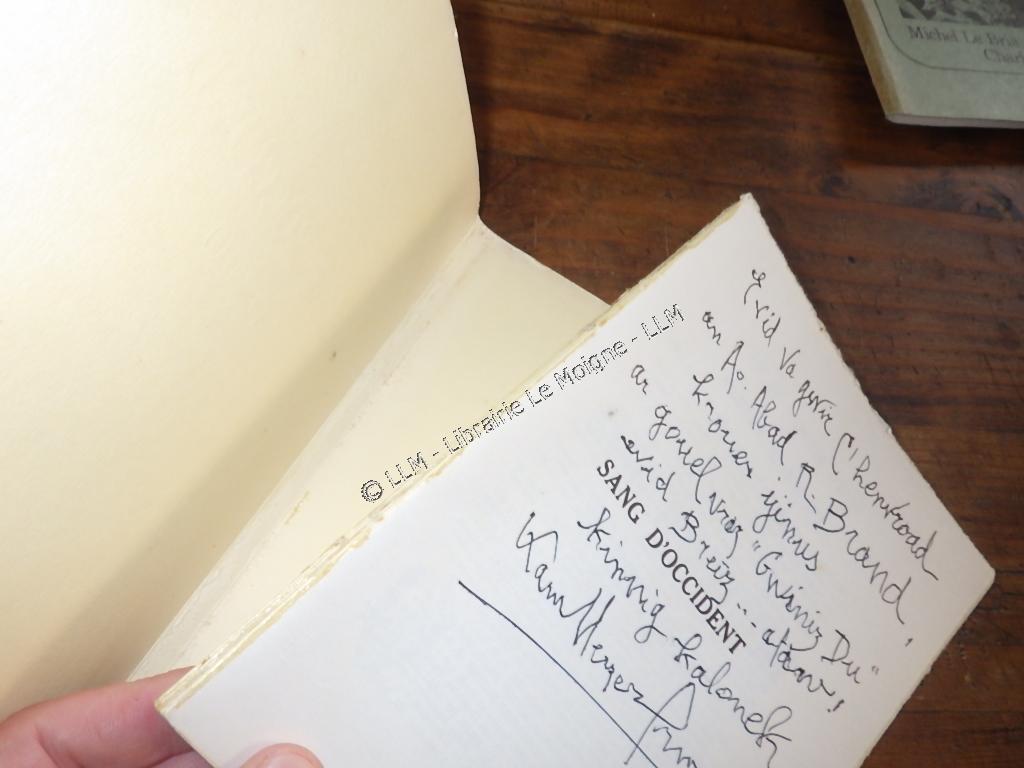 Michel Le Bris
© LLM - Librairie Le Moigne - LLM
Evid va gwir C'Henvroad
an Ao. Abad R. Brand,
krouer ijinus
ar gouel vraz "Gwiniz Du"
evid Breiz... atao!
SANG D'OCCIDENT
kinnig kalonek